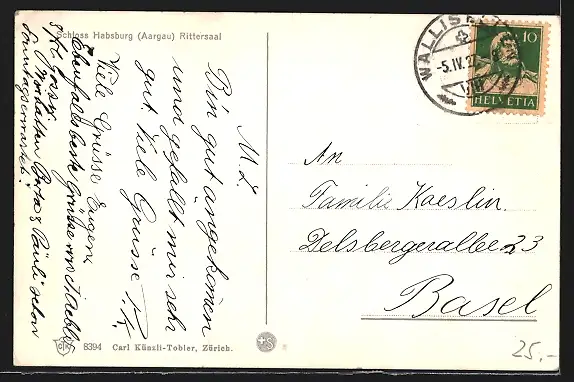 Schloss Habsburg (Aargau) Rittersaal
M. L.
Bin gut angekomen
und gefällt mir sehr
gut Viele Grüsse
Viele Grüsse Eugen.
Ebenfalls beste Grüsse von
Berta & Pauli schon
Sonntags erwartet.
WALLISELLEN
-5.IV.27
VIII
10
HELVETIA
An
Familie Kaeslin.
Delsbergerallee 23
Basel
8394 Carl Künzli-Tobler, Zürich.
+S
25.-